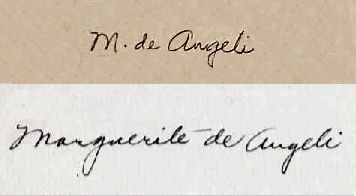 M. de Angeli
Marguerite de Angeli